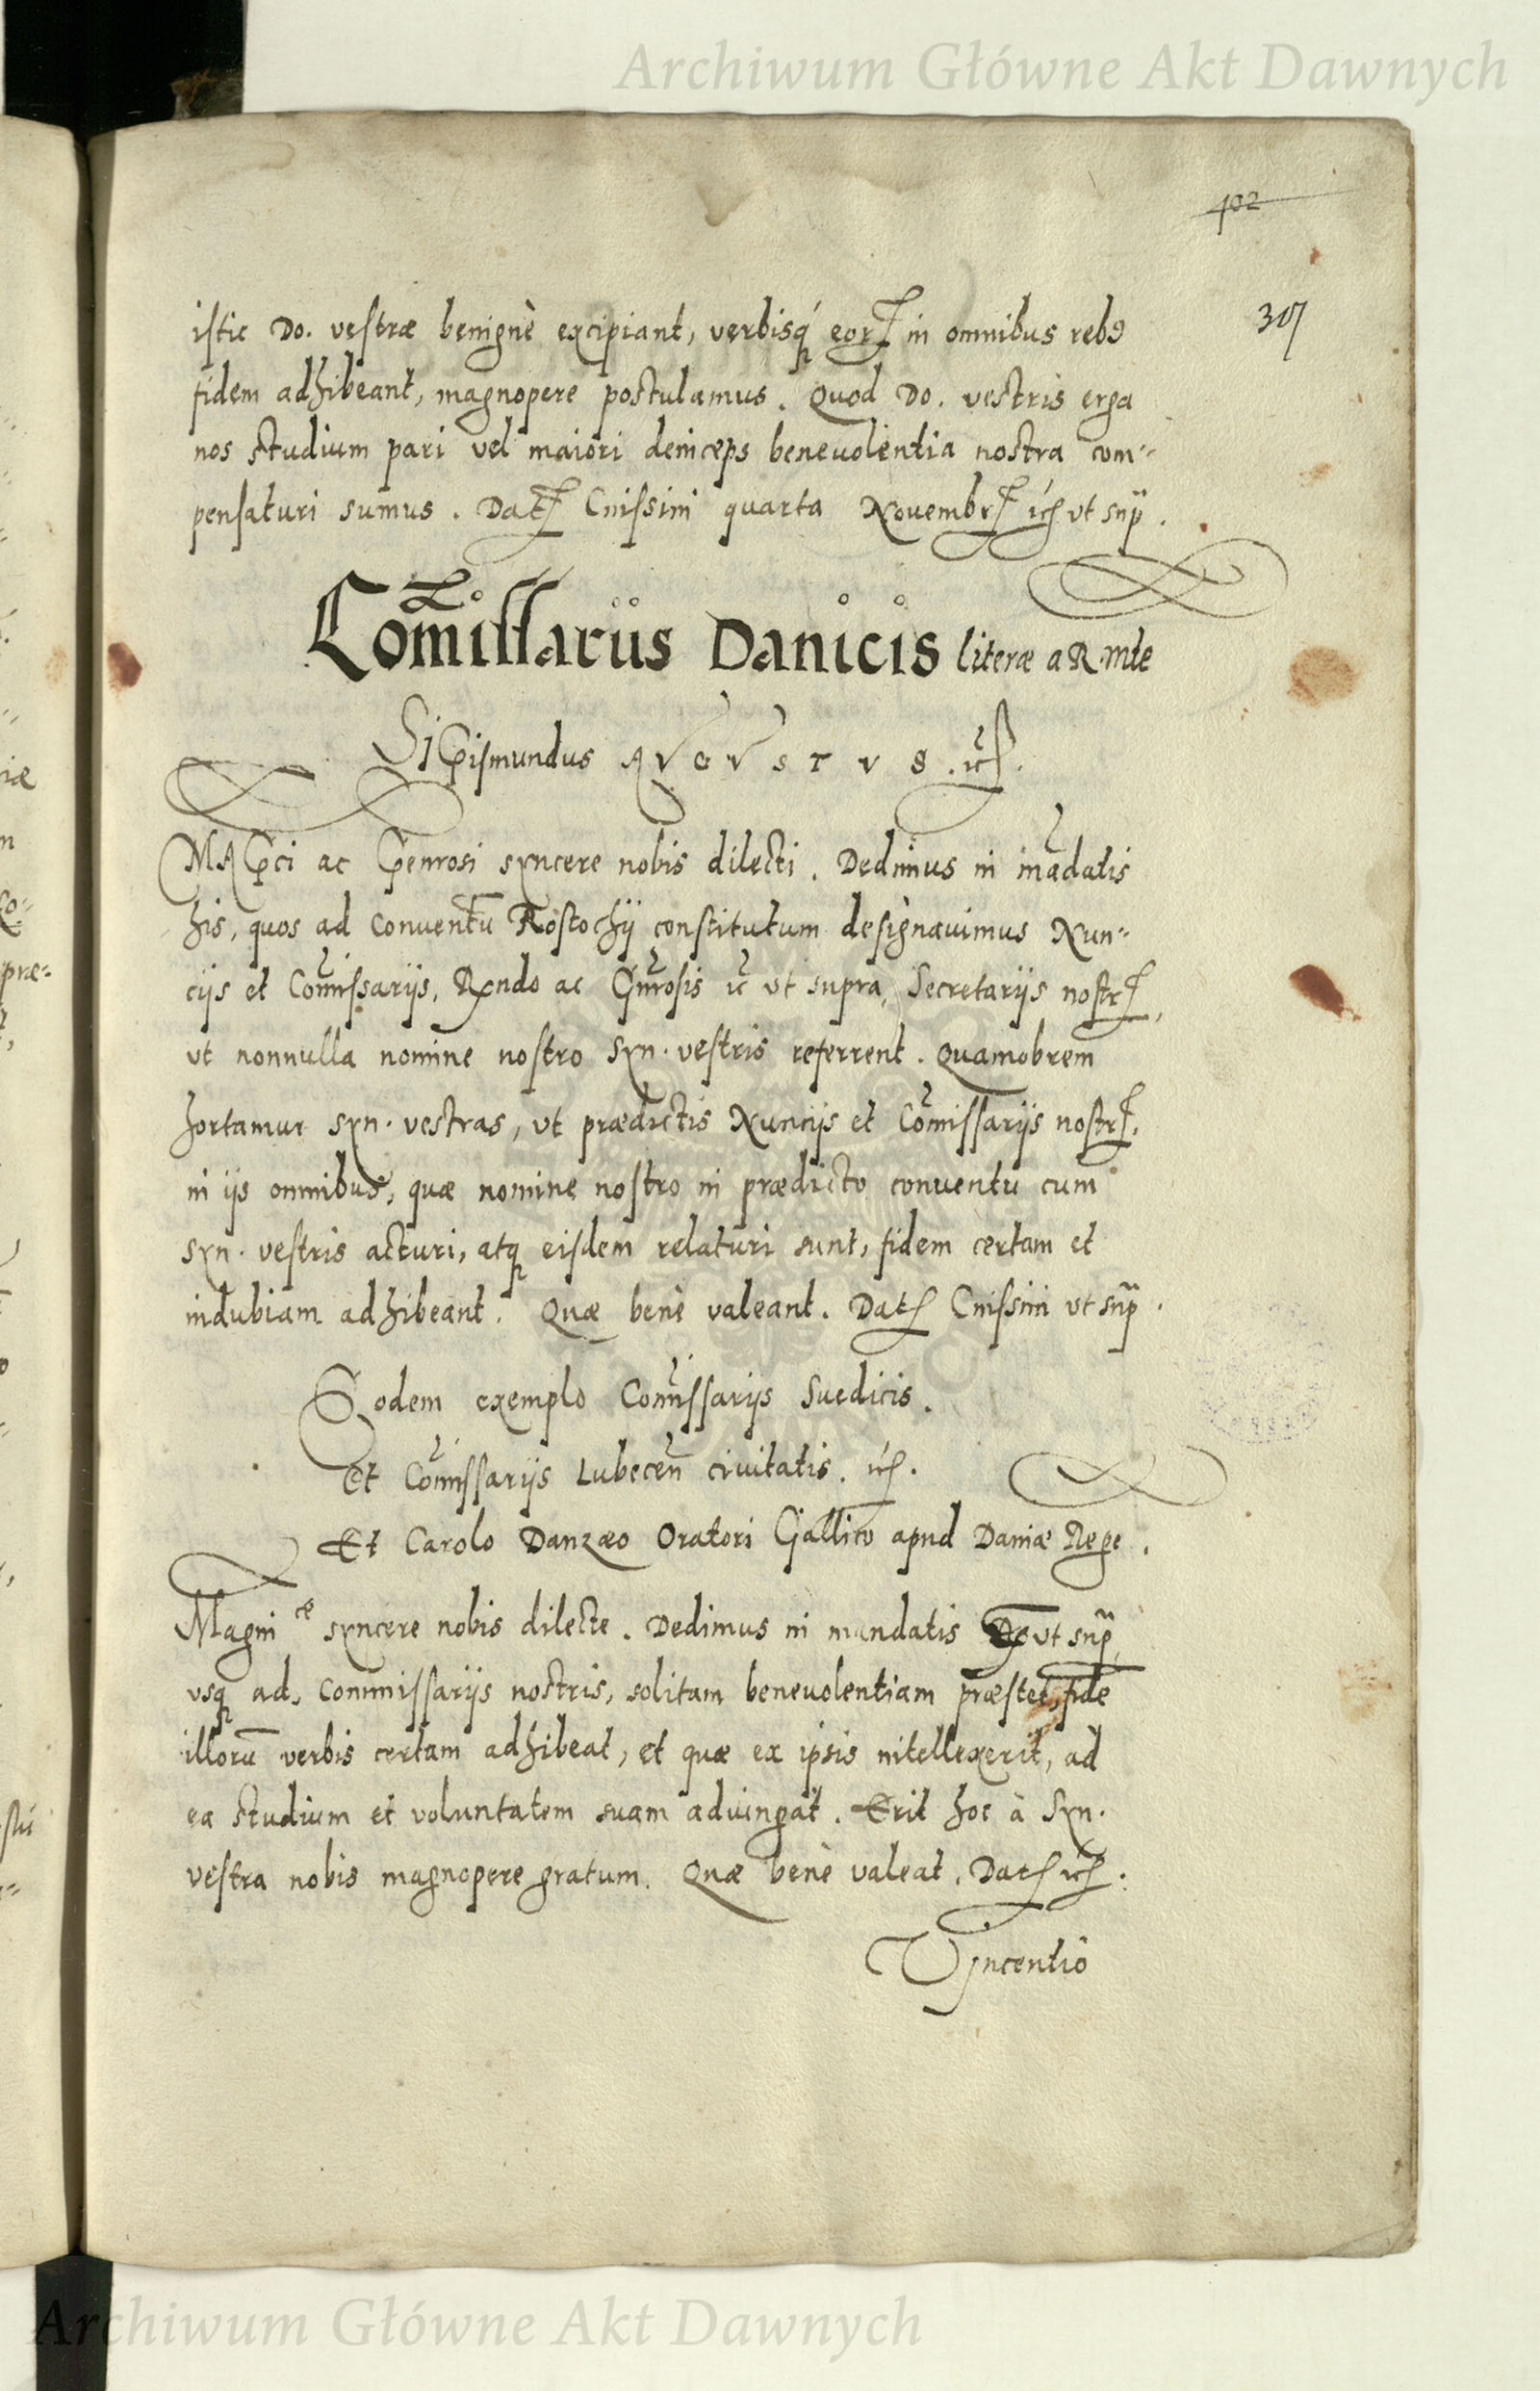 Archiwum Główne Akt Dawnych
402
307
istic Do. vestræ benignè excipiant, verbisq́ eorꝝ in omnibus rebꝰ
fidem adhibeant, magnopere postulamus. Quod Do. vestris erga
nos studium pari vel maiori deinceps beneuolentia nostra com-
pensaturi sumus. Datꝭ Cnissini quarta Nouembrꝭ ic̃ vt sup̃.
Com̃issariis Danicis literæ a R. Mte
Sigismundus AVGVSTVS. ic̃.
Magci ac Generosi syncere nobis dilecti. Dedimus in mãdatis
his, quos ad Conventũ Rostochij constitutum designauimus Nun-
cijs et Com̃issarijs, Rndo ac Gñrosis ic̃ vt supra, Secretarijs nostrꝭ,
vt nonnulla nomine nostro Syn. vestris referrent. Quamobrem
hortamur Syn. vestras, vt prædictis Nuncijs et Com̃issarijs nostrꝭ.
in ijs omnibus, quæ nomine nostro in prædicto conventu cum
Syn. vestris acturi, atq eisdem relaturi sunt, fidem certam et
indubiam adhibeant. Quæ benè valeant. Datꝭ Cnissini vt sup̃.
Eodem exemplo Com̃issarijs Suedicis.
Et Com̃issarijs Lubeceñ civitatis. ic̃.
Et Carolo Danzæo Oratori Gallico apud Daniæ Rege.
Magnice syncere nobis dilecte. Dedimus in mandatis vt sup̃
vsq ad, Commissarijs nostris, solitam beneuolentiam præstet, fidẽ
illorũ verbis certam adhibeat, et quæ ex ipsis intellexerit, ad
ea studium et voluntatem suam adiungat. Erit hoc à Syn.
vestra nobis magnopere gratum. Quæ benè valeat. Datꝭ ic̃.
Vyncentio
Archiwum Główne Akt Dawnych